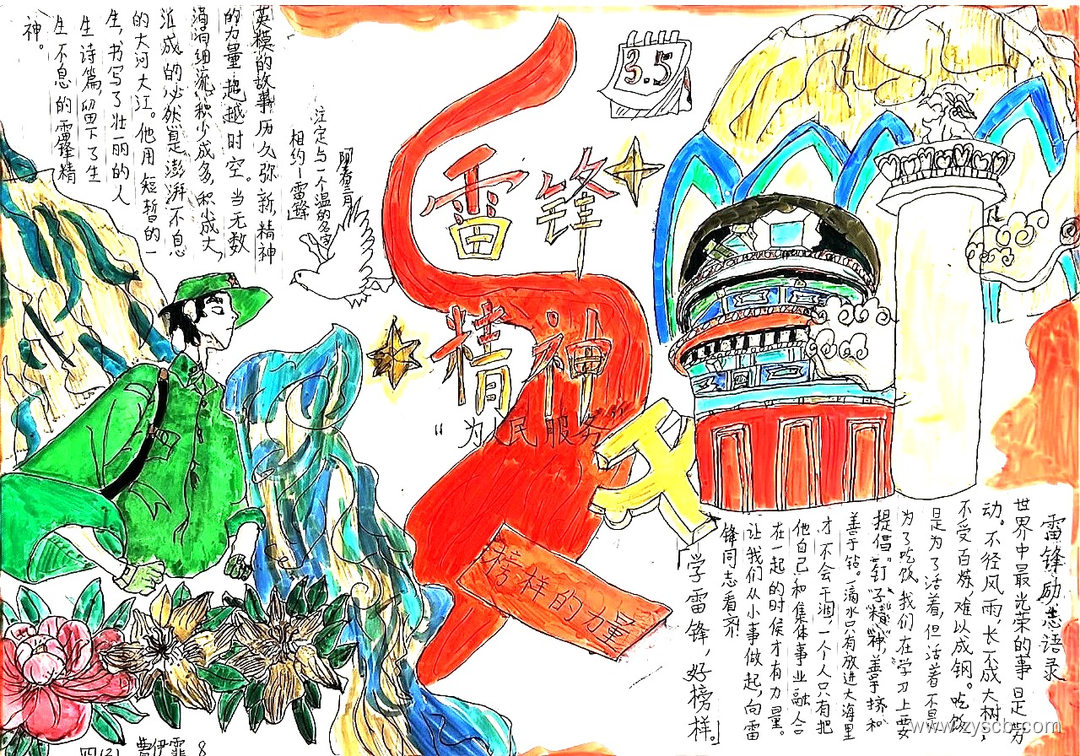 英模的故事历久弥新,精神
的力量超越时空。当无数
涓涓细流积少成多,积成大,
汇成的必然是澎湃不息
的大河大江。他用短暂的一
生,书写了壮丽的人
生诗篇,留下了生
生不息的雷锋精
神。
三月
注定与一个温的名字
相约—雷锋
3.5
雷锋
精神
“为人民服务”
榜样的力量
雷锋励志语录
世界中最光荣的事是劳
动。不经风雨,长不成大树
不受百炼,难以成钢。吃饭
是为了活着,但活着不是
为了吃饭,我们在学习上要
提倡。“钉子精神”,善于挤和
善于钻。滴水只有放进大海里
才不会干涸,一个人只有把
他自己和集体事业融合
在一起的时候才有力量。
让我们从小事做起,向雷
锋同志看齐!
「学雷锋,好榜样」
四(2) 曹伊霏 8
www.zyscb.com